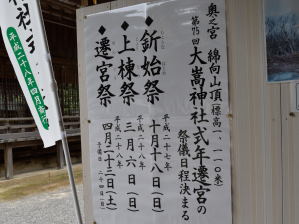 奥之宮 綿向山頂 標高一、一一〇米
第75回 大嵜神社式年遷宮の
祭儀日程決まる
◆釿始祭 平成二十七年 十月十八日(日)
◆上棟祭 平成二十八年 三月六日(日)
◆遷宮祭 平成二十八年 四月二十三日(土)
平成二十八年四月